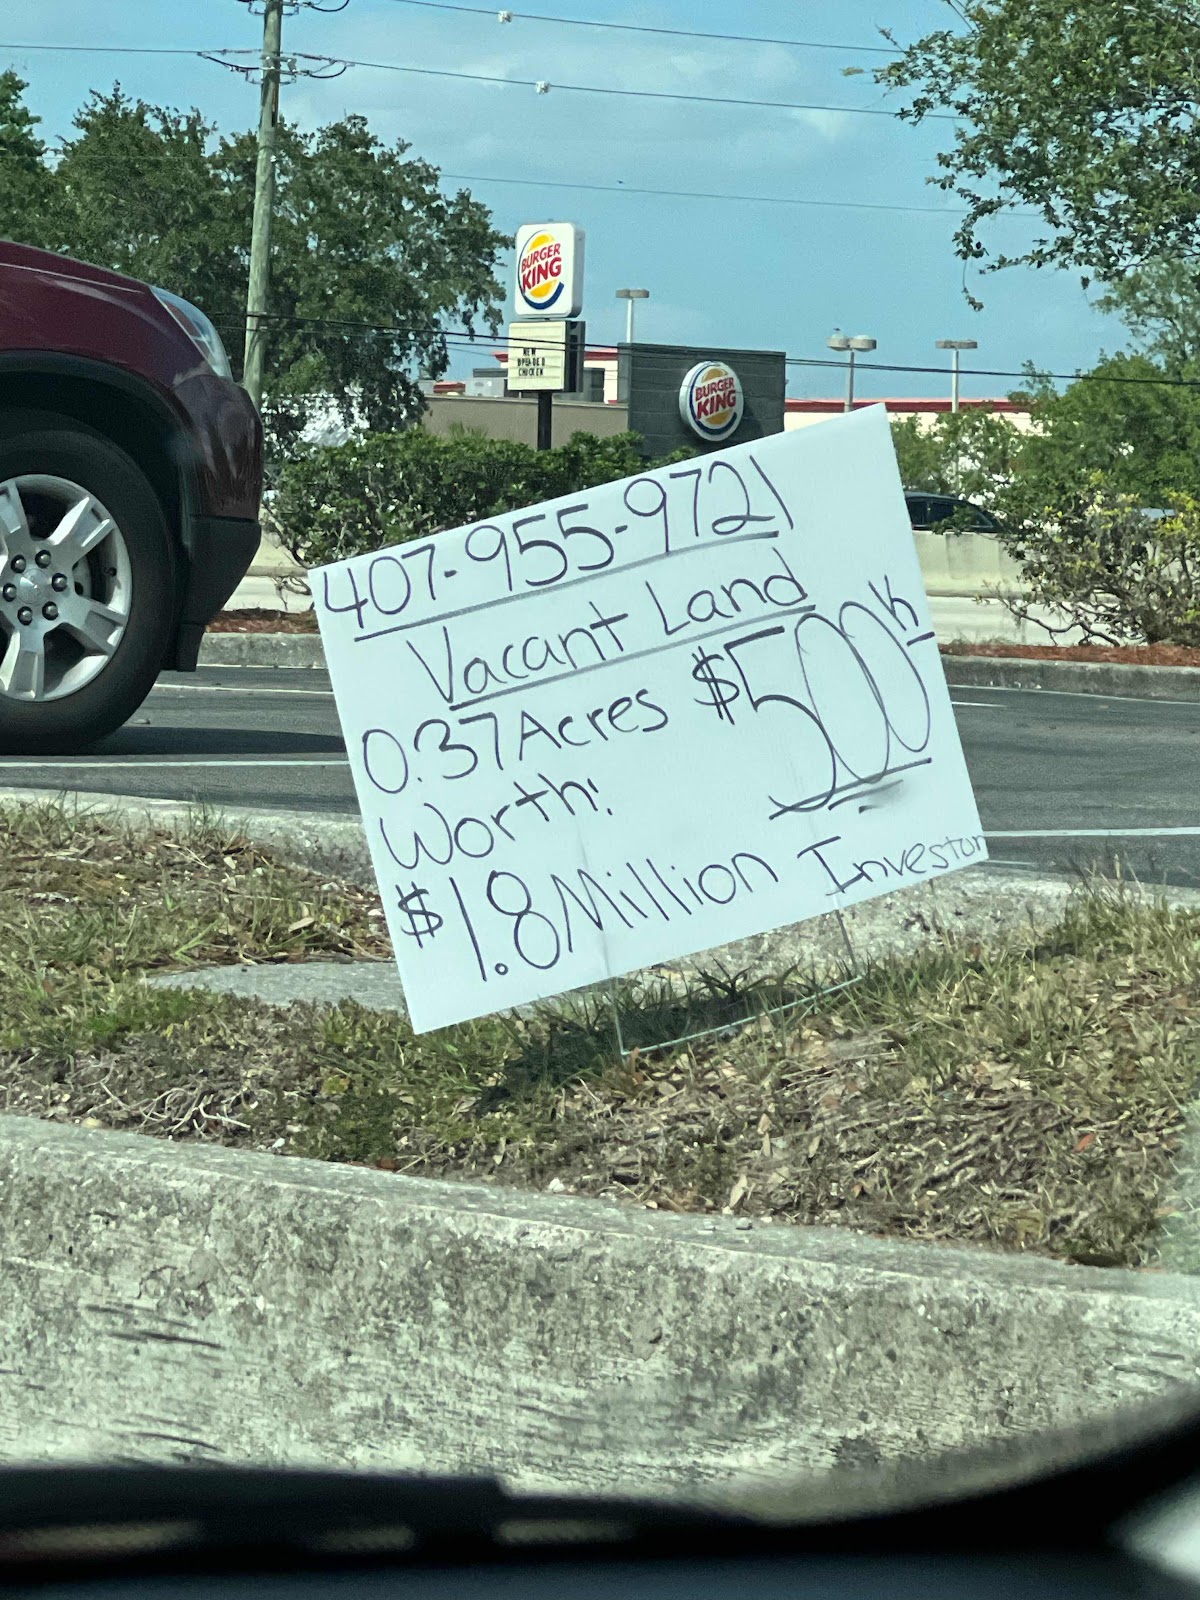 BURGER
KING
NEW
CHICKEN
BURGER
KING
407-955-9721
Vacant Land
0.37 Acres $500K
Worth:
$1.8 Million Investor